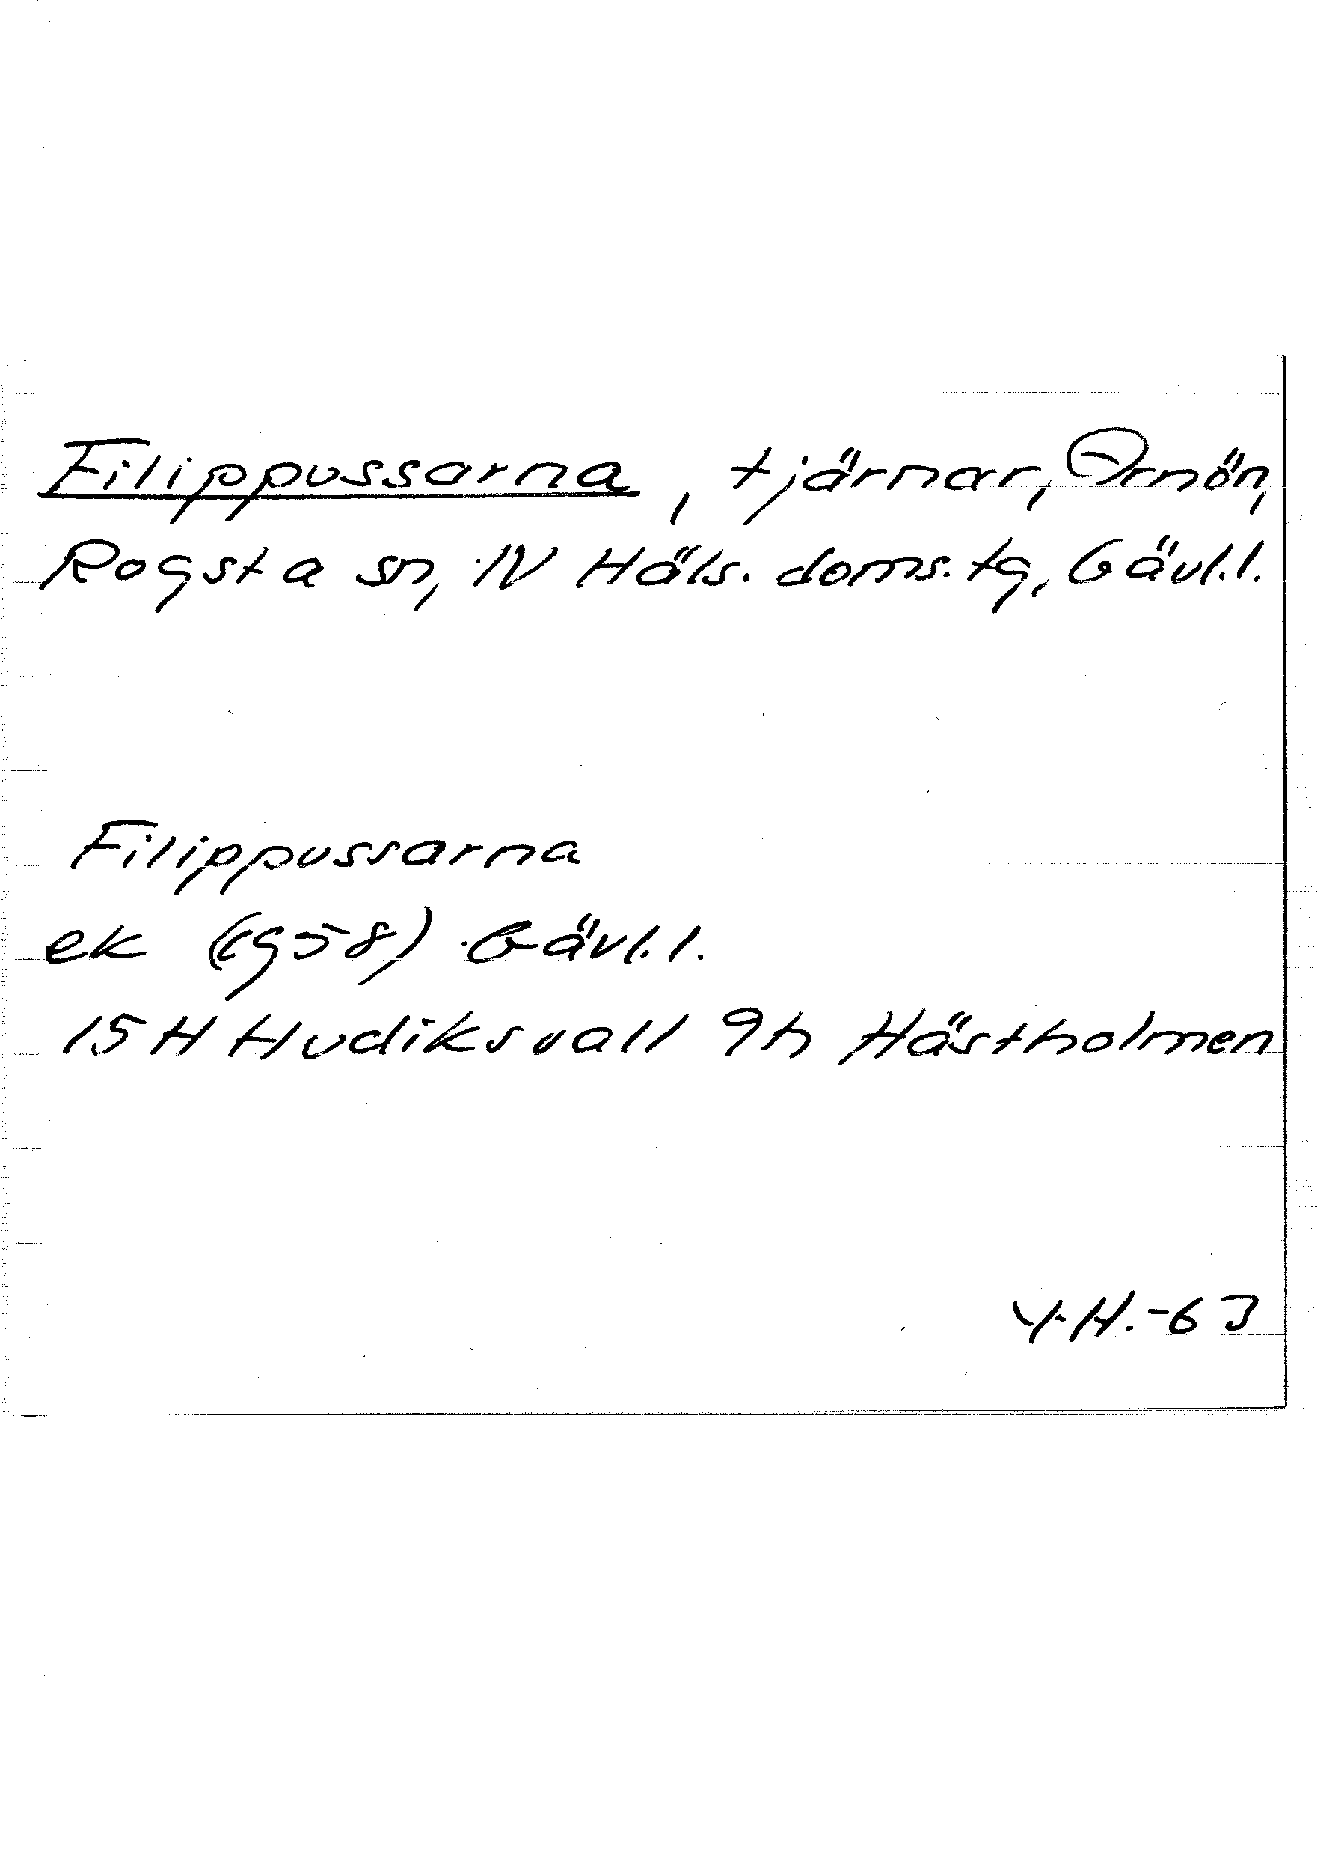 Filippussarna, tjärnar, Ornön,
Rogsta sn, N Häls. doms.tg, Gävl.l.
Filippussarna
ek (1958) Gävl.l.
15H Hudiksvall 9h Hästholmen
Y.H.-63